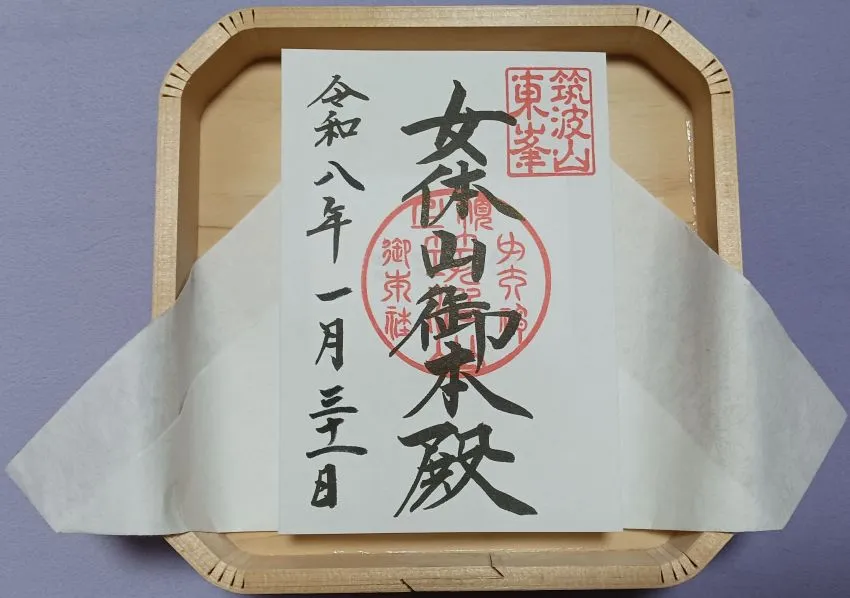 筑波山
東峯
女体山御本殿
御本社
令和八年一月三十一日